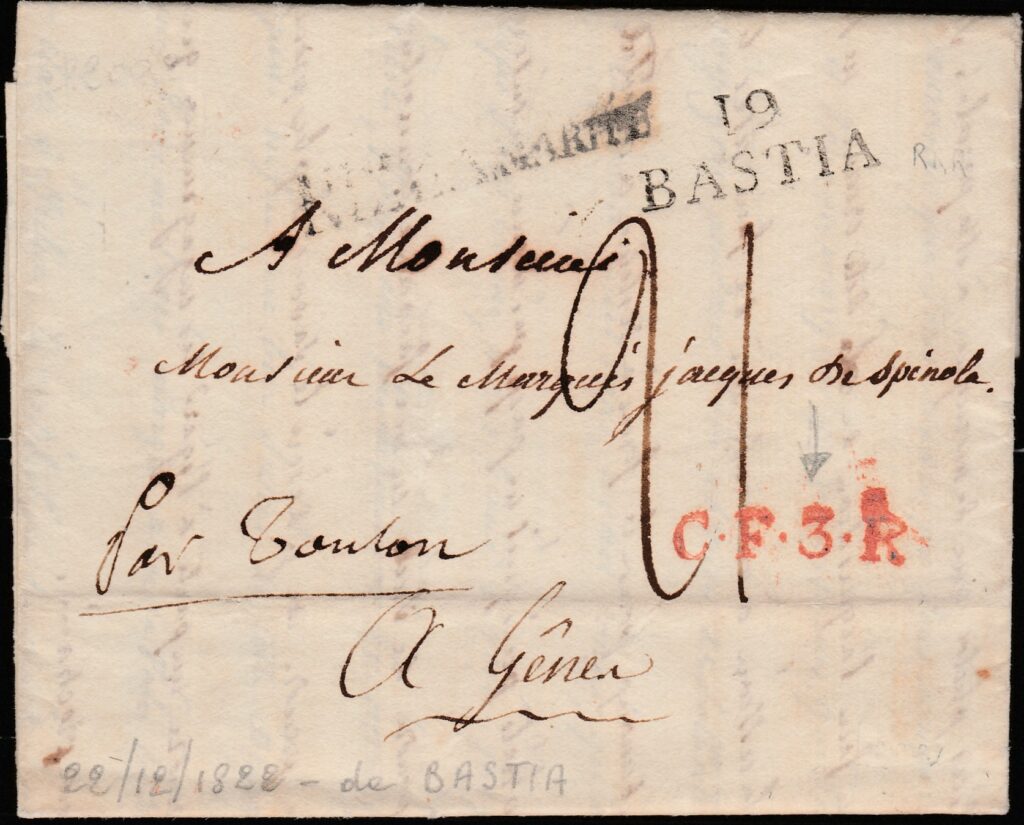 19
BASTIA
RRR
A Monsieur
Monsieur Le Marquis jacques De Spinola.
21
C·F·3·R
Par Toulon
A Gênes
22/12/1822 - de BASTIA